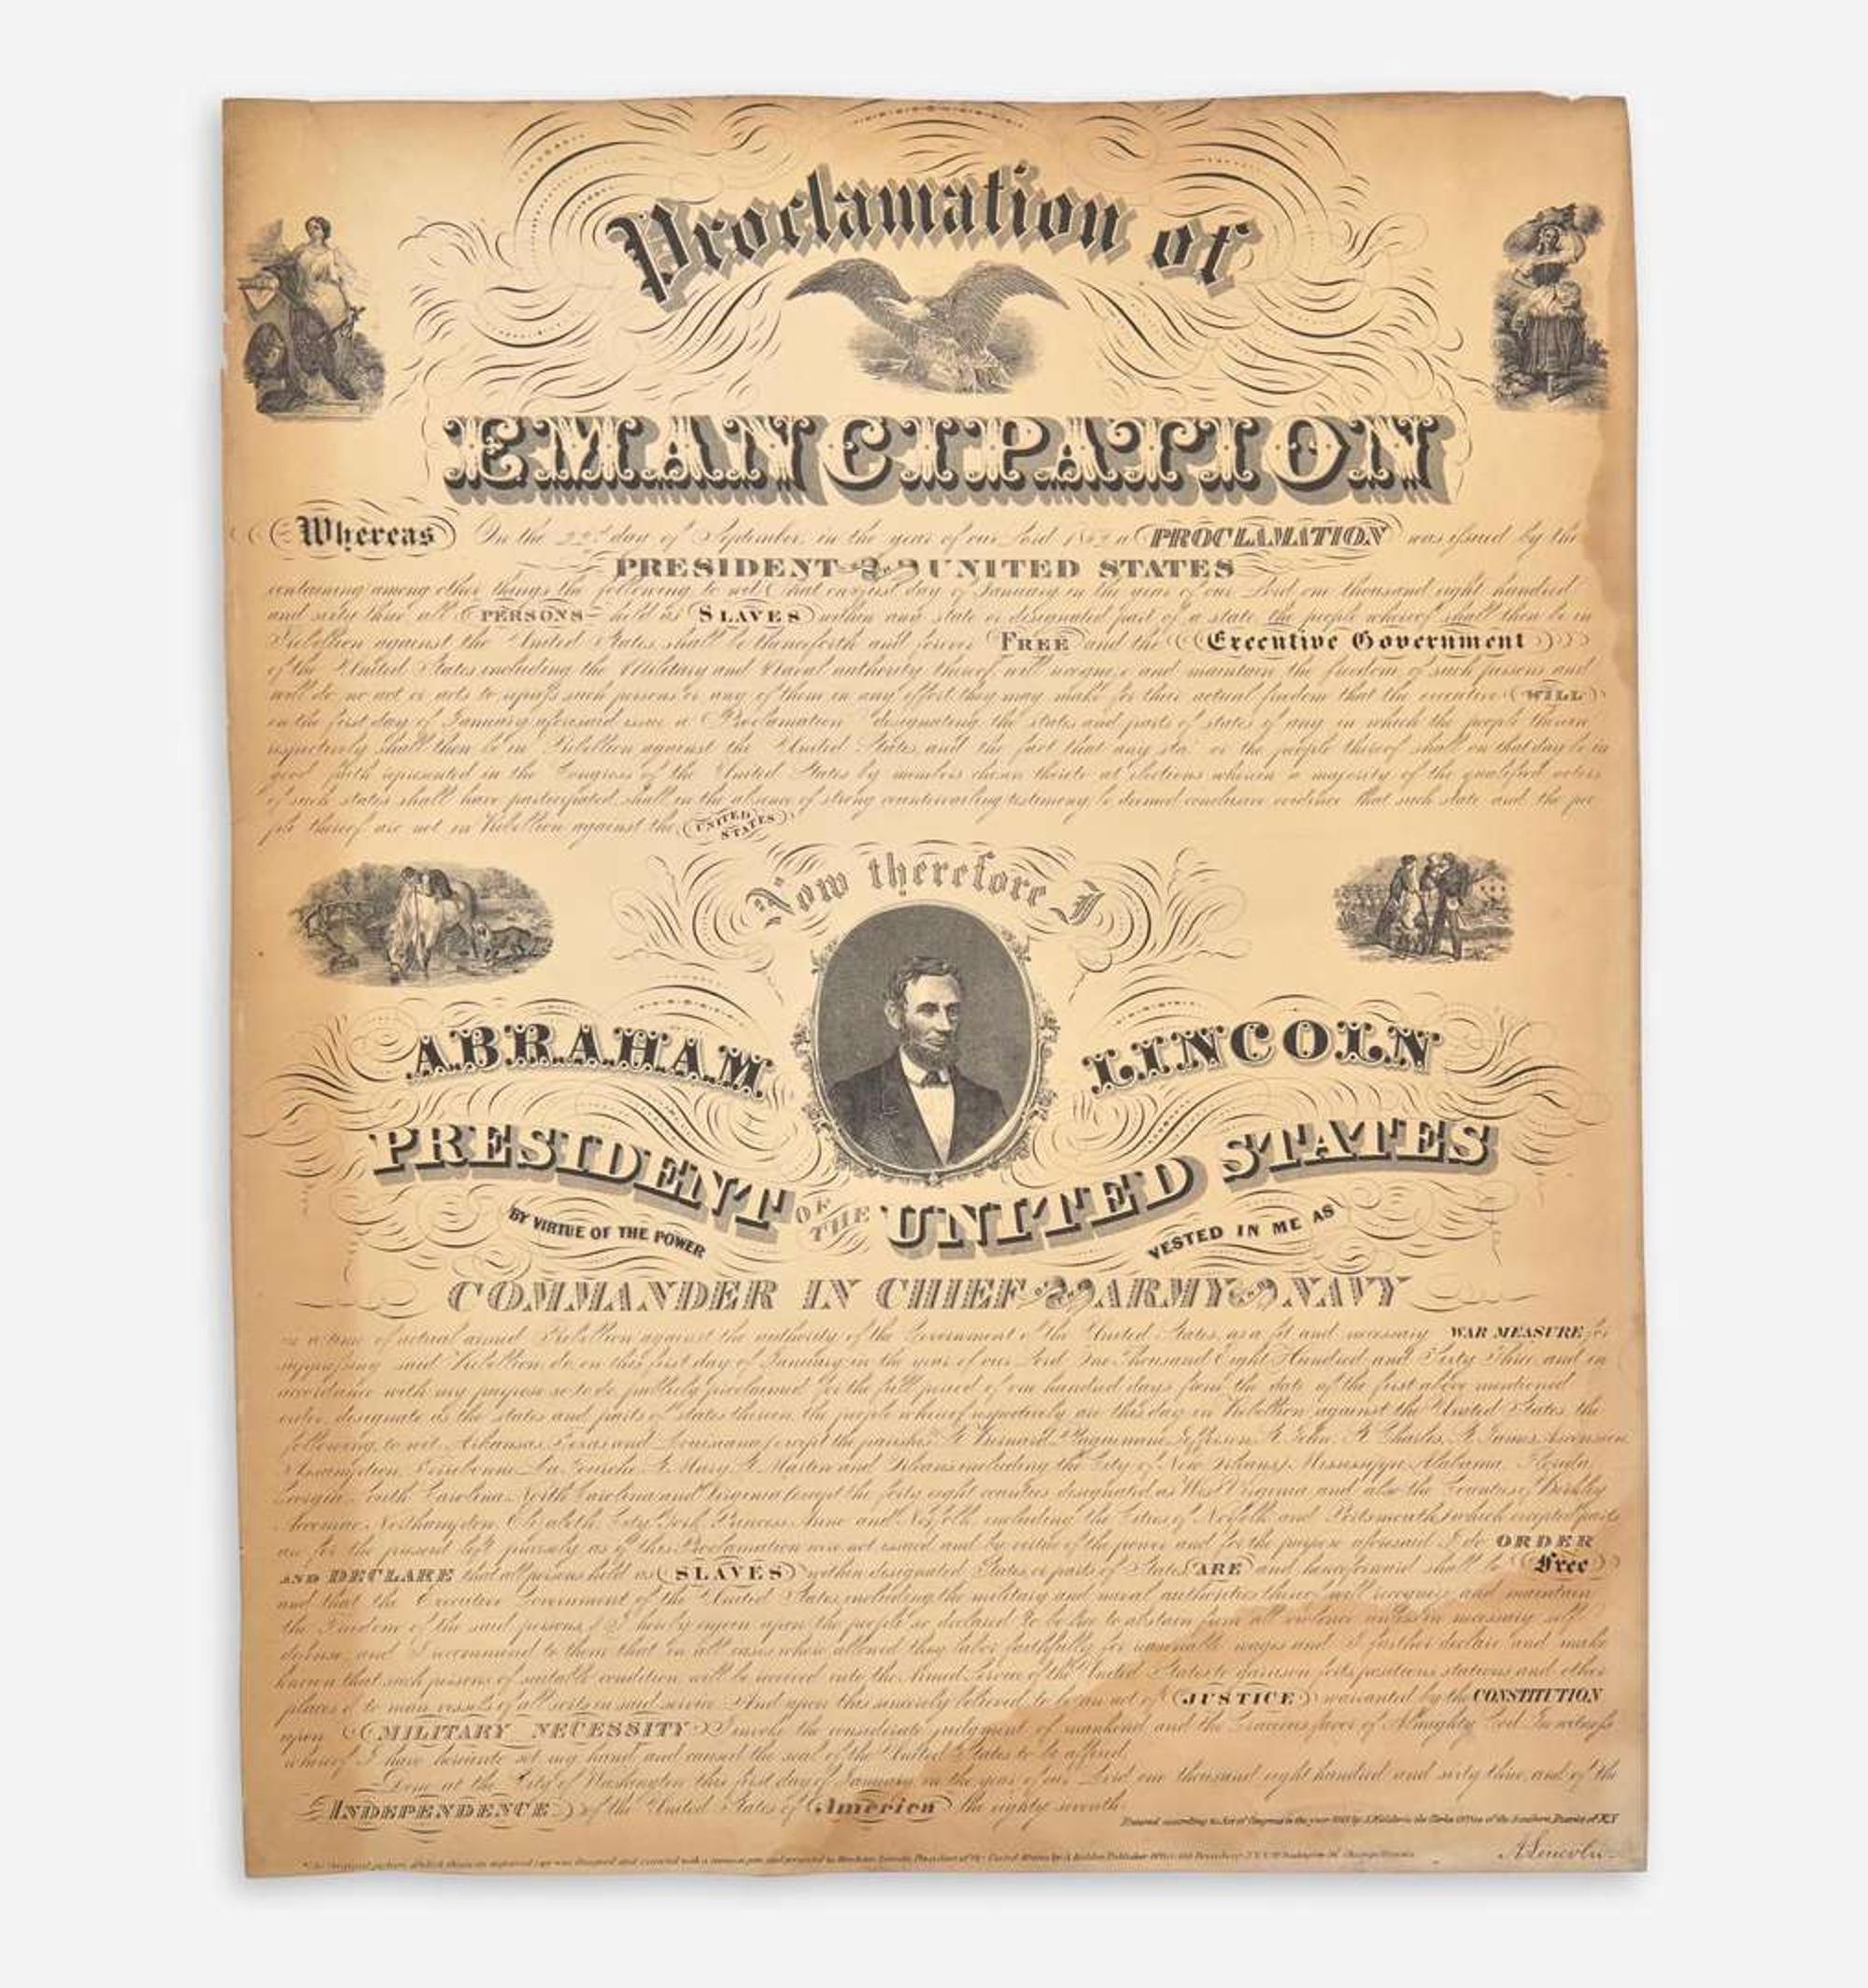 Proclamation of
EMANCIPATION
Whereas In the 22d day of September, in the year of our Lord 1862 a PROCLAMATION was issued by the
PRESIDENT OF THE UNITED STATES
containing among other things the following to wit: That on first day of January in the year of our Lord one thousand eight hundred
and sixty three all PERSONS held as SLAVES within any state or designated part of a state the people whereof shall then be in
Rebellion against the United States shall be thenceforth and forever FREE and the Executive Government
of the United States including the Military and Naval authority thereof will recognize and maintain the freedom of such persons and
will do no act or acts to repress such persons or any of them in any effort they may make for their actual freedom that the executive WILL
on the first day of January aforesaid issue a Proclamation designating the states and parts of states if any in which the people therein
respectively shall then be in Rebellion against the United States and the fact that any state or the people thereof shall on that day be in
good faith represented in the Congress of the United States by members chosen thereto at elections wherein a majority of the qualified voters
of such states shall have participated shall in the absence of strong countervailing testimony be deemed conclusive evidence that such state and the peo
ple thereof are not in Rebellion against the UNITED STATES
Now therefore I
ABRAHAM LINCOLN
PRESIDENT OF THE UNITED STATES
BY VIRTUE OF THE POWER VESTED IN ME AS
COMMANDER IN CHIEF OF THE ARMY AND NAVY
in a time of actual armed Rebellion against the authority of the Government of the United States, as a fit and necessary WAR MEASURE for
suppressing said Rebellion, do on this first day of January in the year of our Lord One Thousand Eight Hundred and Sixty Three and in
accordance with my purpose so to do publicly proclaimed for the full period of one hundred days from the date of the first above mentioned
order, designate as the states and parts of states therein the people whereof respectively are this day in Rebellion against the United States the
following to wit Arkansas Texas and Louisiana (except the parishes St Bernard Plaquemine Jefferson St John St Charles St James Ascension
Assumption Terrebonne La Fourche St Mary St Martin and Orleans including the City of New Orleans) Mississippi Alabama Florida
Georgia South Carolina North Carolina and Virginia (except the forty eight counties designated as West Virginia and also the Counties of Berkley
Accomac Northampton Elizabeth City York Princess Anne and Norfolk including the Cities of Norfolk and Portsmouth) which excepted parts
are for the present left precisely as if this Proclamation were not issued and by virtue of the power and for the purpose aforesaid I do ORDER
AND DECLARE that all persons held as SLAVES within designated States or parts of States ARE and henceforward shall be Free
and that the Executive Government of the United States including the military and naval authorities thereof will recognize and maintain
the Freedom of the said persons I hereby enjoin upon the people so declared to be free to abstain from all violence unless in necessary self
defense and I recommend to them that in all cases where allowed they labor faithfully for reasonable wages and I further declare and make
known that such persons of suitable condition will be received into the Armed Service of the United States to garrison forts positions stations and other
places & to man vessels of all sorts in said service And upon this sincerely believed to be an act of JUSTICE warranted by the CONSTITUTION
upon MILITARY NECESSITY I invoke the considerate judgment of mankind and the Gracious favor of Almighty God In witness
whereof I have hereunto set my hand and caused the seal of the United States to be affixed
Done at the City of Washington this first day of January in the year of our Lord one thousand eight hundred and sixty three, and of the
INDEPENDENCE of the United States of America the eighty seventh.
Entered according to Act of Congress in the year by in the Clerks Office of the Southern District of N.Y
A. Lincoln